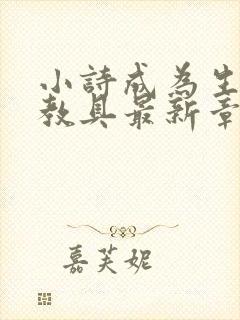 小詩成為生
教具最新章
嘉芙妮